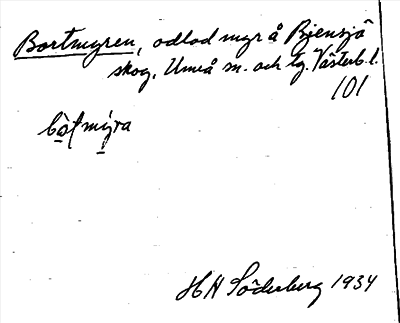 Bortmyren, odlad myr å Bjensjö
skog, Umeå sn. och tg. Västerb. l.
101
bo̱ʈmy̱ra
H H Söderberg 1934